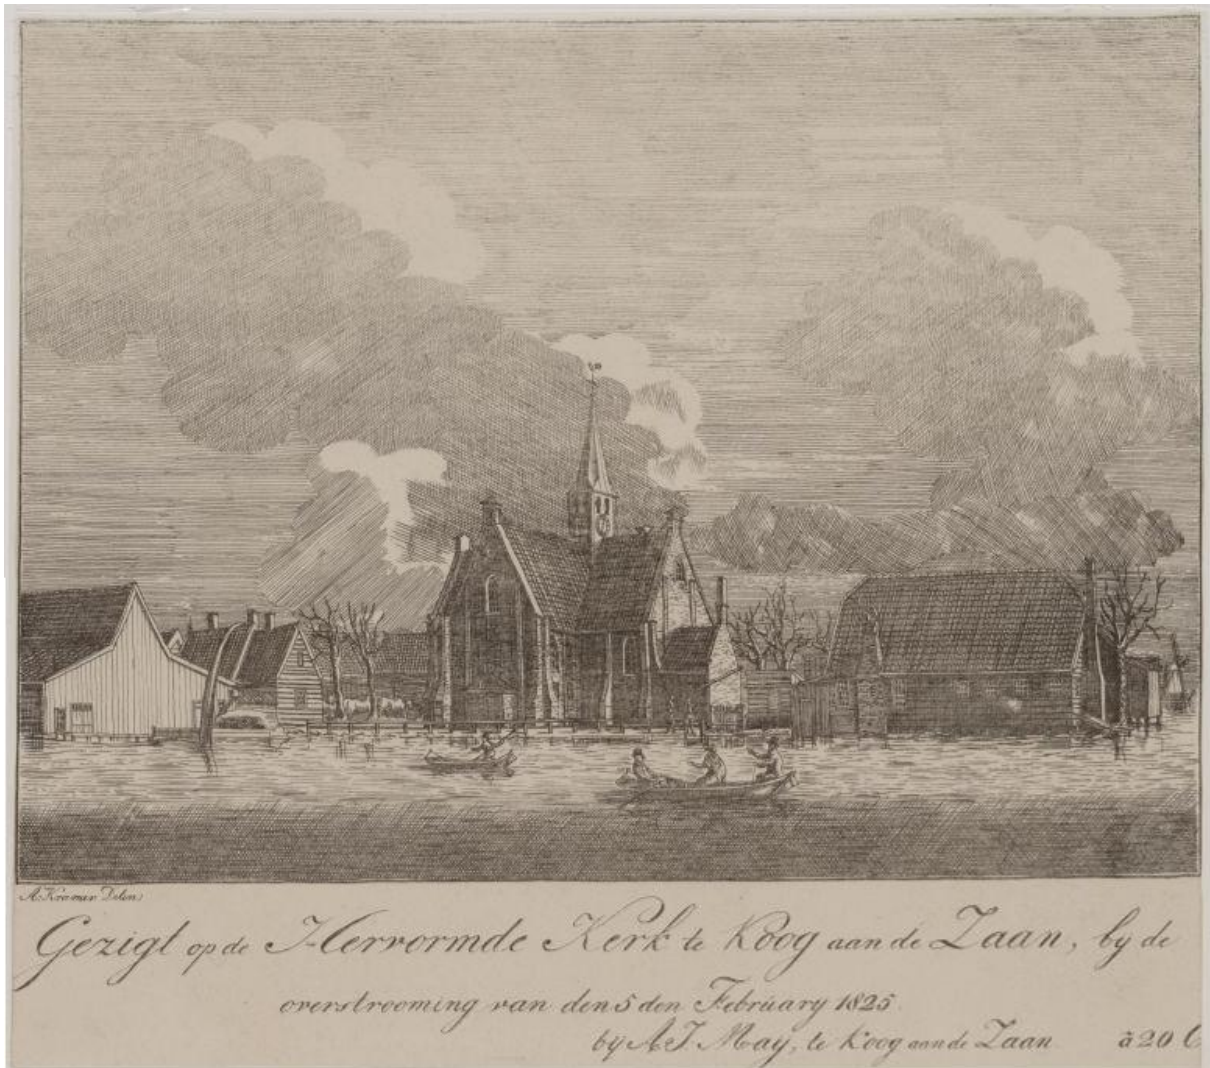 A. Kramer Delin:
Gezigt op de Hervormde Kerk te Koog aan de Zaan, by de
overstrooming van den 5 den February 1825.
by A. J. May, te Koog aan de Zaan à 20 C